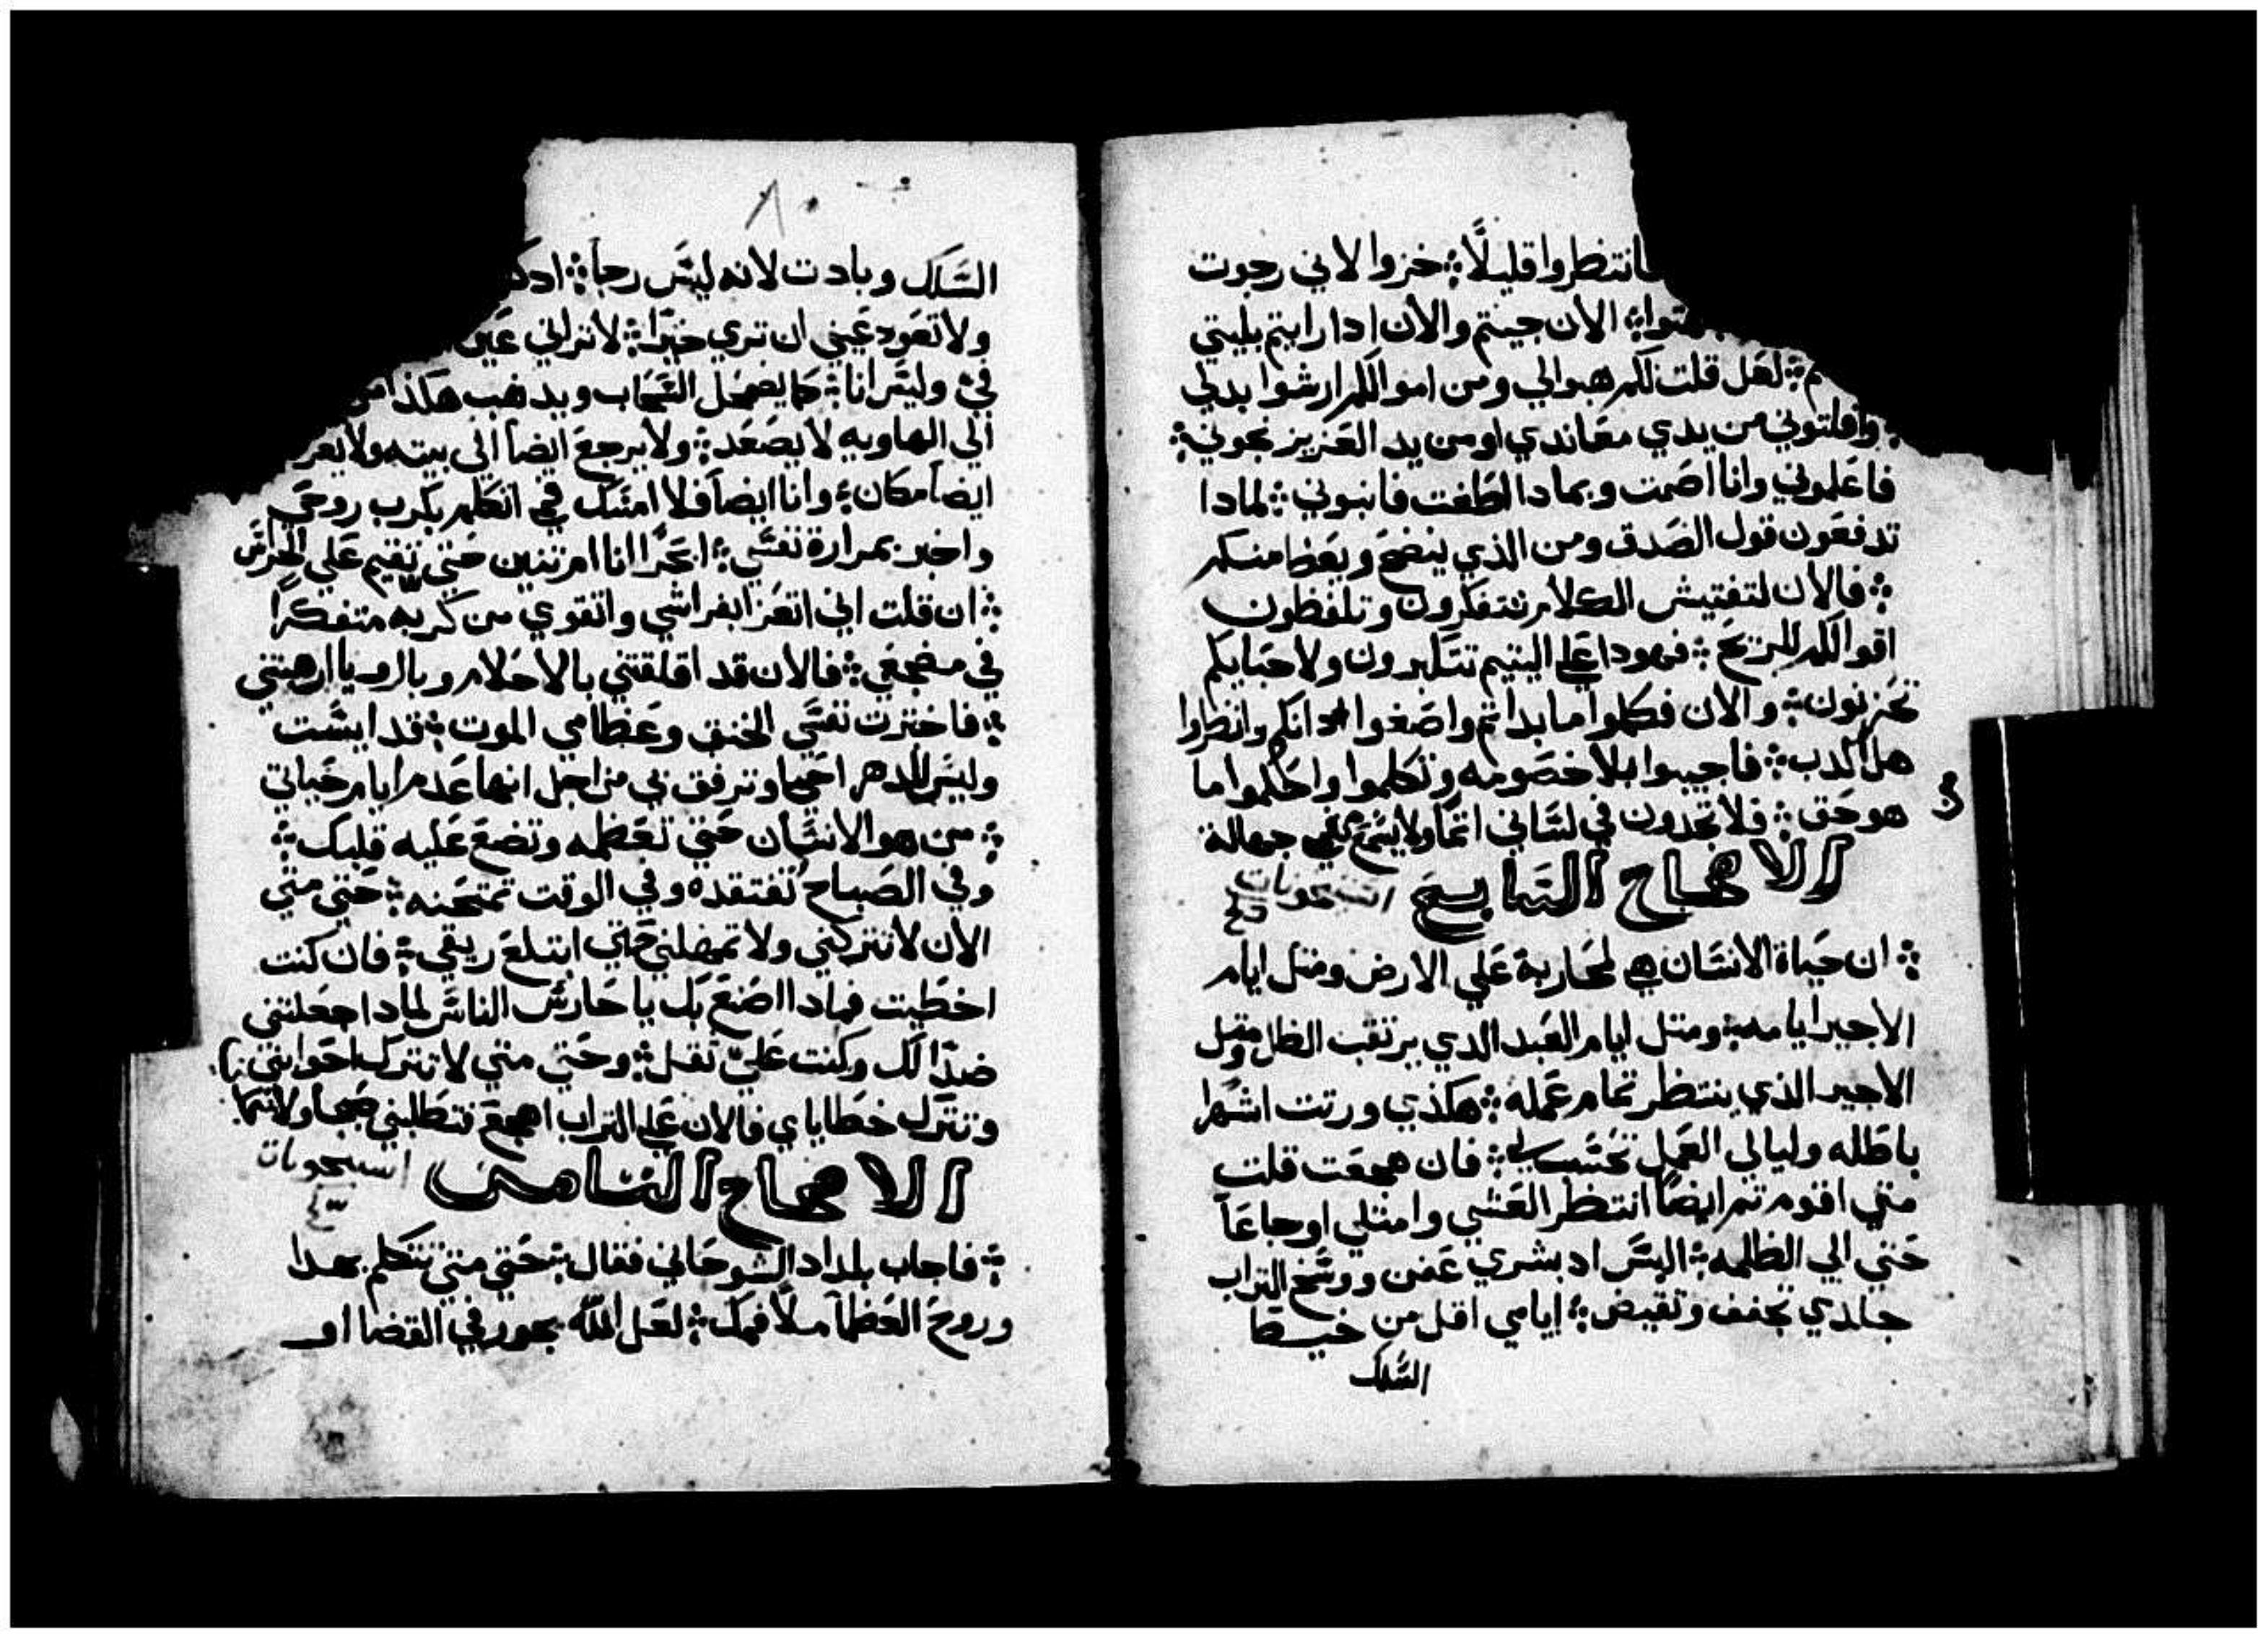 فانتظروا قليلًا ܀ خزوا لاني رجوت
الان جيتم والان ادا رايتم بليتي
لهل قلت لكم هبوا لي ومن اموالكم ارشوا بدلي
وافلتوني من يدي معاندي او من يد العزيز نجوني ܀
فاعلموني وانا اصمت وبمادا الطغت فانبوني ܀ لمادا
تدفعون قول الصدق ومن الذي ينضح ويعظ منكم
܀ فالان لتفتيش الكلام تتفكرون وتلفظون
اقوالكم للريح ܀ فهودا علي اليتيم تتكبرون ولاحبايكم
تحزنون ܀ والان فكلوا ما بداتم واصغوا ادانكم وانظروا
هل اكدب ܀ فاجيبوا بلا خصومه وتكلموا واحكموا ما
هو حق ܀ فلا تجدون في لساني اتمًا ولا يسمع في جهالة
الاصحاح السابع
܀ ان حياة الانسان هي لمحاربة علي الارض ومتل ايام
الاجير ايامه ܀ ومتل ايام العبد الدي يرتقب الظل ومتل
الاجير الذي ينتظر تمام عمله ܀ هكذي ورتت اشهرا
باطله وليالي العمل تحتسب لي ܀ فان هجعت قلت
متي اقوم تم ايضًا انتظر العشي وامتلي اوجاعًا
حتي الي الظلمه ܀ البس اد بشري عفن ووسخ التراب
جلدي تجفف وتقبض ܀ ايامي اقل من خيط
السلك
٨٠
السلك وبادت لانه ليس رجا ܀ ادك
ولا تعود عيني ان تري خيرًا ܀ لا تراني عين
في وليس انا ܀ كما يضمحل السحاب ويدهب هكذا من
الي الهاويه لا يصعد ܀ ولا يرجع ايضا الي بيته ولا يعر
ايضا مكان ܀ وانا ايضا فلا امسك في اتكلم بكرب روحي
واخبر بمرارة نفسي ܀ ابحرًا انا ام تنين حتي تقيم علي الحراس
܀ ان قلت اني اتعزا بفراشي واتقوي من كربه متفكرًا
في مضجعي ܀ فالان قد اقلقتني بالاحلام وبالرويا ارهبتني
܀ فاخترت نفسي الخنق وعظامي الموت ܀ قد ايست
وليس للدهر احيا وترفق بي من اجل انها عدم ايام حياتي
܀ من هو الانسان حتي تعظمه وتضع عليه قلبك ܀
وفي الصباح تفتقده وفي الوقت تمتحنه ܀ حتي متي
الان لا تتركني ولا تمهلني حتي ابتلع ريقي ܀ فان كنت
اخطيت فمادا اصنع بك يا حارس الناس لمادا جعلتني
ضدًا لك وكنت عليّ تقل ܀ وحتي متي لا تترك
وتترك خطاياي فالان علي التراب اهجع فتطلبني صبحا ولا
الاصحاح التامن
܀ فاجاب بلداد الشوحاني فقال ܀ حتي متي تتكلم بهدا
وروح العظا ملا فمك ܀ لعل اللّه يجور في القضا او